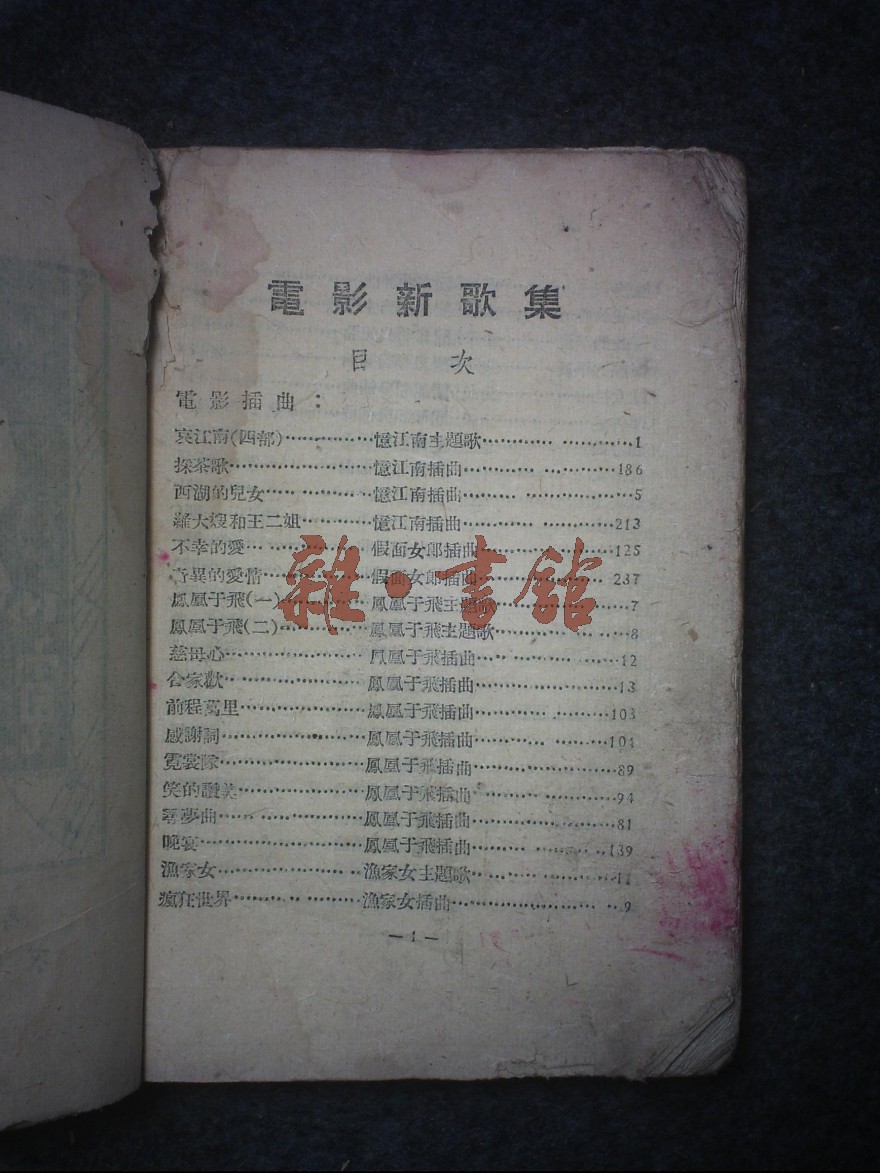 電影新歌集
目次
電影插曲：
哀江南(四部)…………憶江南主題歌…………1
採茶歌…………憶江南插曲…………186
西湖的兒女…………憶江南插曲…………5
羅大嫂和王二姐…………憶江南插曲…………213
不幸的愛…………假面女郎插曲…………125
奇異的愛情…………假面女郎插曲…………237
鳳凰于飛(一)…………鳳凰于飛主題歌…………7
鳳凰于飛(二)…………鳳凰于飛主題歌…………8
慈母心…………鳳凰于飛插曲…………12
合家歡…………鳳凰于飛插曲…………13
前程萬里…………鳳凰于飛插曲…………103
感謝詞…………鳳凰于飛插曲…………104
霓裳隊…………鳳凰于飛插曲…………89
笑的讚美…………鳳凰于飛插曲…………94
尋夢曲…………鳳凰于飛插曲…………81
晚宴…………鳳凰于飛插曲…………139
漁家女…………漁家女主題歌…………11
瘋狂世界…………漁家女插曲…………9
—1—
雜·書館